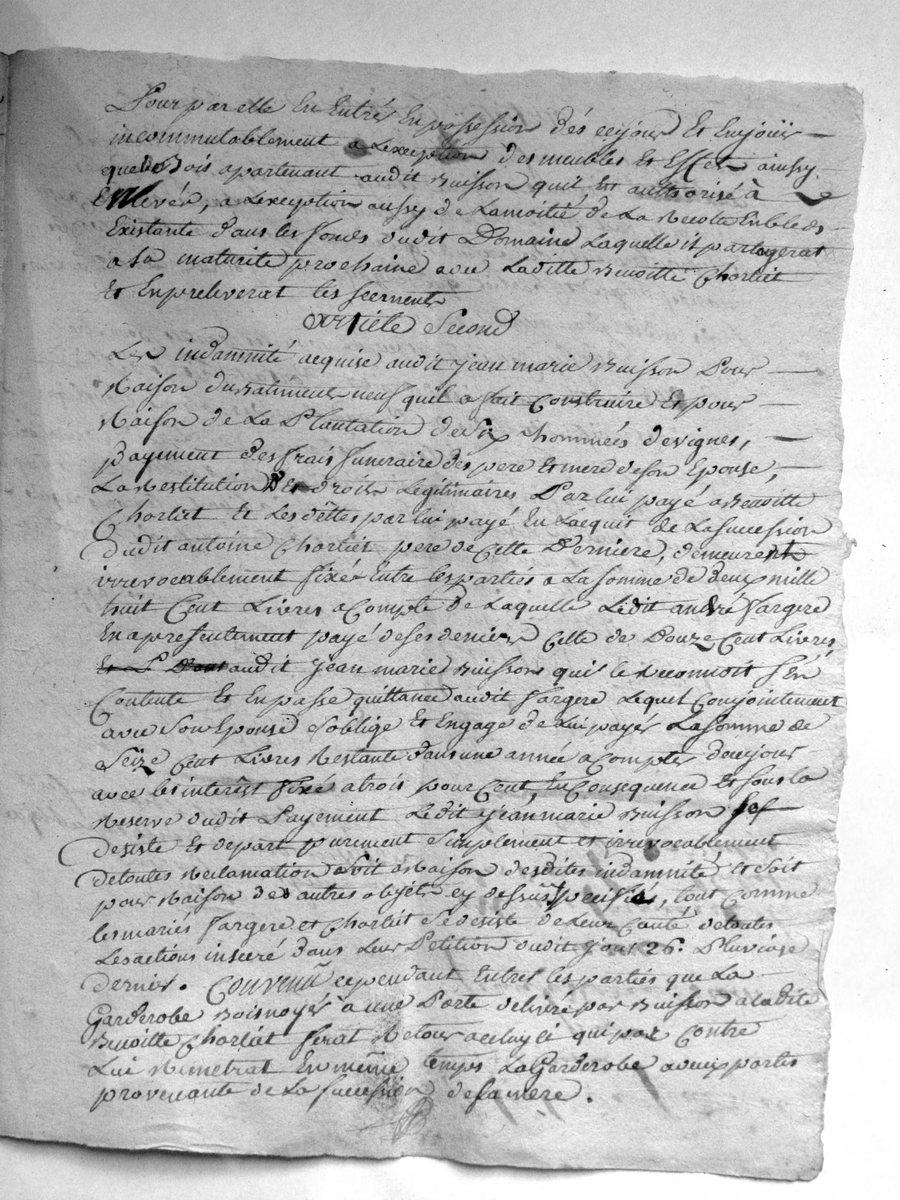 Pour par elle En Entré En possession dés cejour Et Enjoüir —
incommutablement a Lexception des meubles Et Effet ainsy
que Bois apartenant audit Buisson quil Est authorisé à
Enlevér, a Lexception aussy de Lamoitié de La Recolte Enbleds
Existante dans les fonds dudit Domaine Laquelle il partagerat
a sa maturité prochaine avec Laditte Benoitte Chorliet
Et Enpreleverat les sements
article Second
Les indamnité acquise audit jean marie Buisson Pour —
Raison du Batiment neuf quil a fait Construire Et pour —
Raison de La Plantation de Six hommées devignes, —
payement des frais funeraire des pere Et mere de son Epouse,
La Restitution Des droits Legitimaires Par lui payé a Benoitte
Chorliet Et Les dettes par lui payé En Lacquit de La succession
dudit antoine Chorliet pere de Cette Derniere, demeurent
irrevocablement fixé Entre les parties a La somme de deux mille
huit Cent Livres a Compte de Laquelle Ledit andré Fargere
En a presentement payé de ses deniers Celle de Douze Cent Livres
audit jean marie Buisson qui le reconnoit s'En
Contente Et En passe quittance audit Fargere Lequel Conjointement
avec Son Eponse s'oblige Et Engage de Lui payér La somme de
Seize Cent Livres Restante dans une année a Compter de cejour
avec les interest fixé a trois pour Cent, En Consequence Et sous la
Reserve dudit Payement Ledit jean marie Buisson se
desiste Et depart purement Simplement et irrevocablement
detoutes Reclamation soit a Raison desdites indamnité Et soit
pour Raison des autres objets cy dessus specifiés, tout Comme
les mariés Fargere et Chorliet Se desiste de Leur Coauté detoutes
Les actions inséré dans Leur Petition dudit jour 26. Pluviose
dernier. Convenu cependant Entres les parties que La
Garderobe Boisnoyér a une Porte delivré par Buisson a ladite
Benoitte Chorliet ferat Retour a celuy ci qui par Contre
Lui Remetrat En même temps La Garderobe a deux portes
provenante de La succession de sa mere.